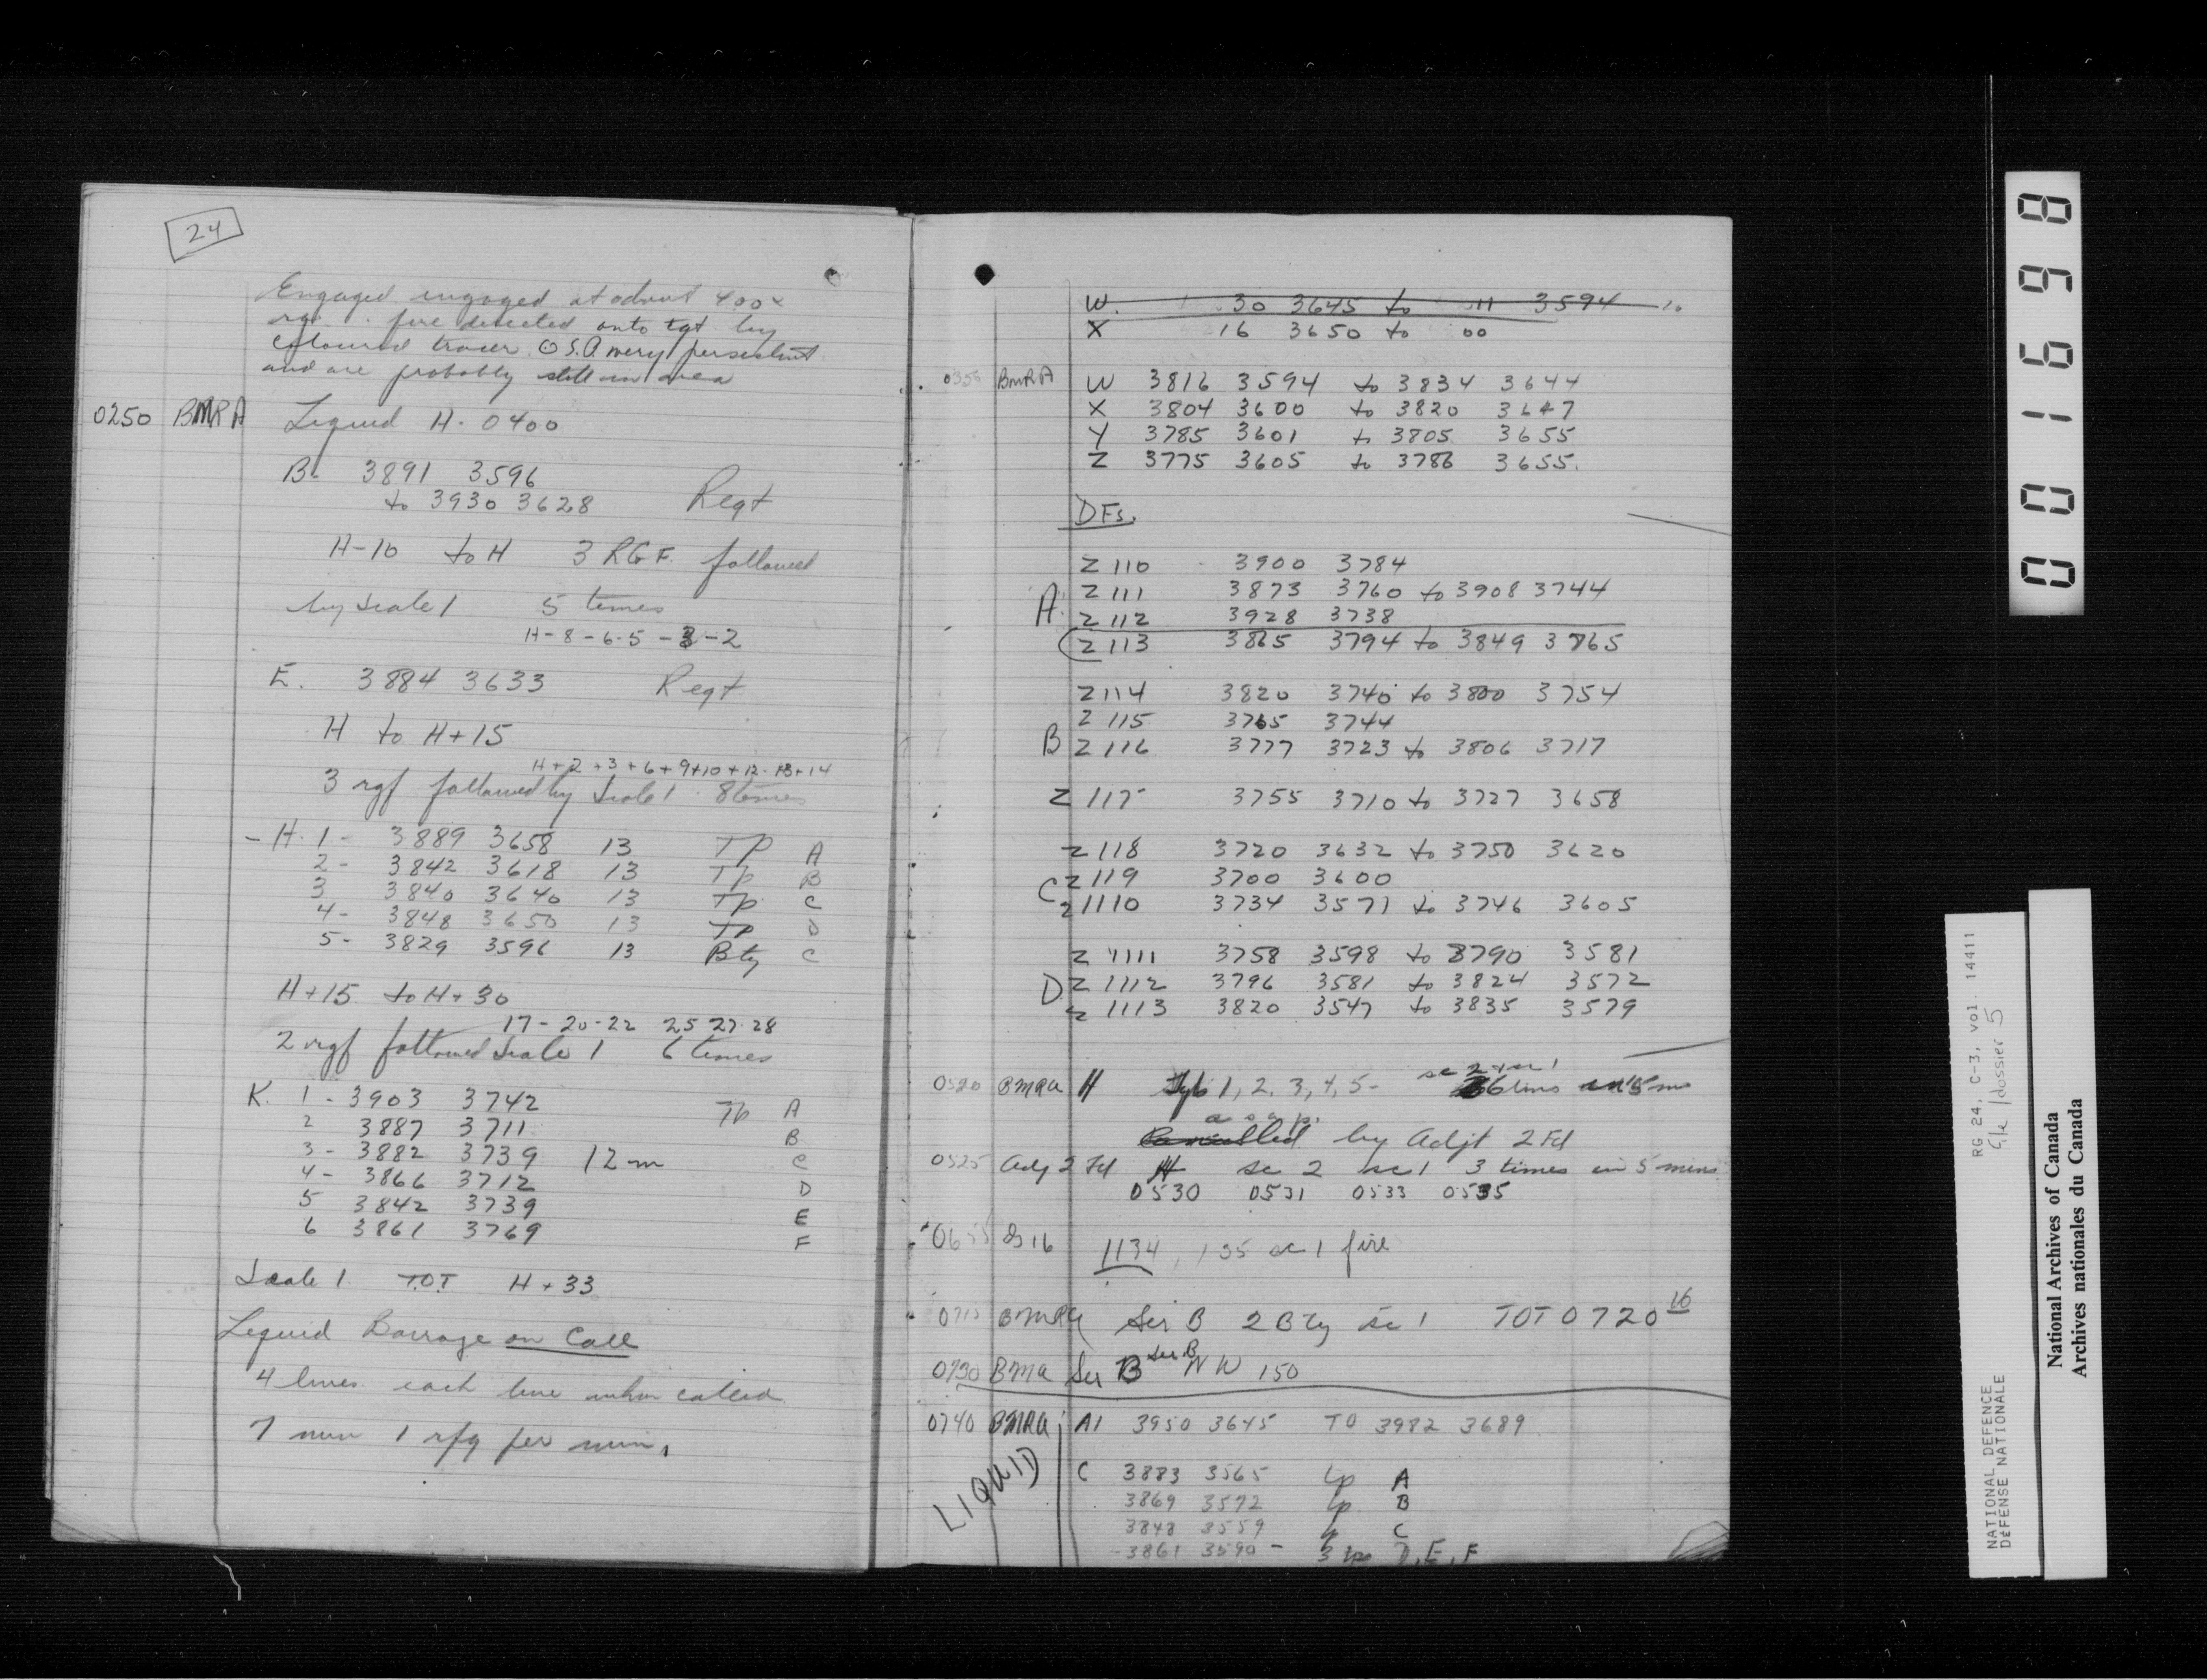 24
Engaged engaged at about 400x
rge. fire directed onto tgt by
coloured tracer. S.A very persistent
and are probably still in area
0250 BMRA Liquid H - 0400
B. 3891 3596
to 3930 3628 Regt
H-10 to H 3 RGF. followed
by Scale 1 5 times
H-8-6-5-3-2
E. 3884 3633 Regt
H to H+15
H+2+3+6+9+10+12-13+14
3 rgf followed by Scale 1 8 times
- H. 1 - 3889 3658 13 Tp A
2 - 3842 3618 13 Tp B
3 3840 3640 13 Tp C
4 - 3848 3650 13 Tp D
5 - 3829 3596 13 Bty C
H+15 to H+30
17-20-22 25 27-28
2 rgf followed Scale 1 6 times
K. 1 - 3903 3742 Tp A
2 3887 3711 B
3 - 3882 3739 12 m C
4 - 3866 3712 D
5 3842 3739 E
6 3861 3769 F
Scale 1 TOT H+33
Liquid Barrage on Call
4 lines each line when called
7 min 1 rfg per min.
W. 30 3645 to 11 3594
X 16 3650 to 00
0355 BMRA W 3816 3594 to 3834 3644
X 3804 3600 to 3820 3647
Y 3785 3601 to 3805 3655
Z 3775 3605 to 3786 3655.
DFs.
Z 110 3900 3784
Z 111 3873 3760 to 3908 3744
A. Z 112 3928 3738
Z 113 3865 3794 to 3849 3765
Z 114 3820 3740 to 3800 3754
Z 115 3765 3744
B Z 116 3777 3723 to 3806 3717
Z 117 3755 3710 to 3727 3658
Z 118 3720 3632 to 3750 3620
C Z 119 3700 3600
Z 1110 3734 3571 to 3746 3605
Z 1111 3758 3598 to 3790 3581
D. Z 1112 3796 3581 to 3824 3572
Z 1113 3820 3547 to 3835 3579
sc 2 + sc 1
0520 BMRA H 1, 2, 3, 4, 5 - 6 tims in 5 m
a s a p.
Cancelled by Adjt 2 Fd
0525 Adj 2 Fd H sc 2 sc 1 3 times in 5 mins
0530 0531 0533 0535
1134, 135 sc 1 fire
0715 BMRA Ser B 2 Bty sc 1 TOT 0720
Ser B
0730 BMRA Ser B NW 150
0740 BMRA A1 3950 3645 TO 3982 3689
LIQUID
C 3883 3565 tp A
3869 3572 tp B
3848 3559 tp C
- 3861 3590 - 3 tps D, E, F
001698
RG 24, C-3, vol. 14411
file/dossier 5
NATIONAL DEFENCE
DÉFENSE NATIONALE
National Archives of Canada
Archives nationales du Canada